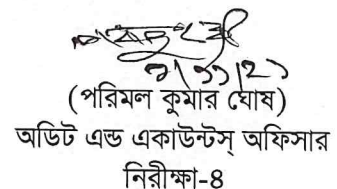 ৯/১১/২১
(পরিমল কুমার ঘোষ)
অডিট এন্ড একাউন্টস্ অফিসার
নিরীক্ষা-৪